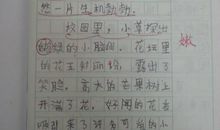 然一片生机勃勃。
校园里，小草探出
嫩绿的小脑袋，花坛里
嫩
的花五彩缤纷，露出了
笑脸，高大的芒果树上
开满了花，好闻的花香
吸引来了许多可